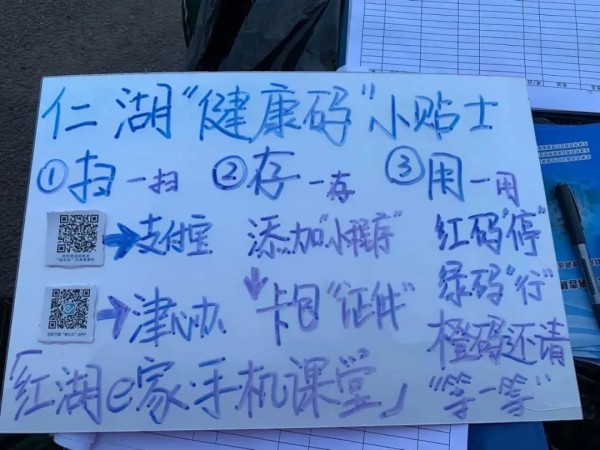 仁湖“健康码”小贴士
①扫一扫 ②存一存 ③用一用
支付宝 添加“小程序” 红码“停”
绿码“行”
津心办 卡包“证件” 橙码还请
“等一等”
「红湖e家·手机课堂」